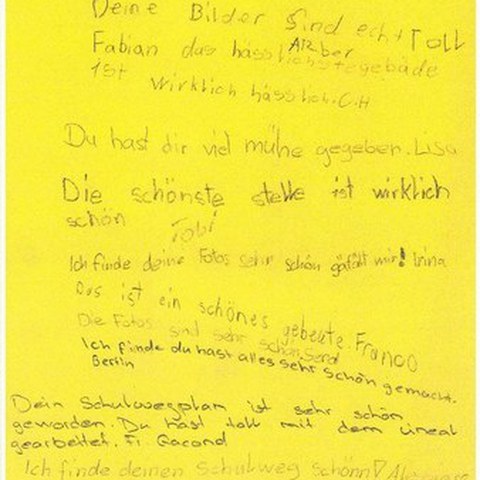 Deine Bilder sind echt Toll
Fabian das Aber
hässlichstegebäde
ist wirklich hässlich. C.H
Du hast dir viel mühe gegeben. Lisa
Die schönste stelle ist wirklich
schön Tobi
Ich finde deine Fotos sehr schön gefällt mir! Irina
Das ist ein schönes gebeute. Franco
Die Fotos sind sehr schön.
Ich finde du hast alles sehr schön gemacht.
Berlin
Dein Schulwegplan ist sehr schön
geworden. Du hast toll mit dem lineal
gearbeitet. Fr. Gacond
Ich finde deinen Schulweg schönn